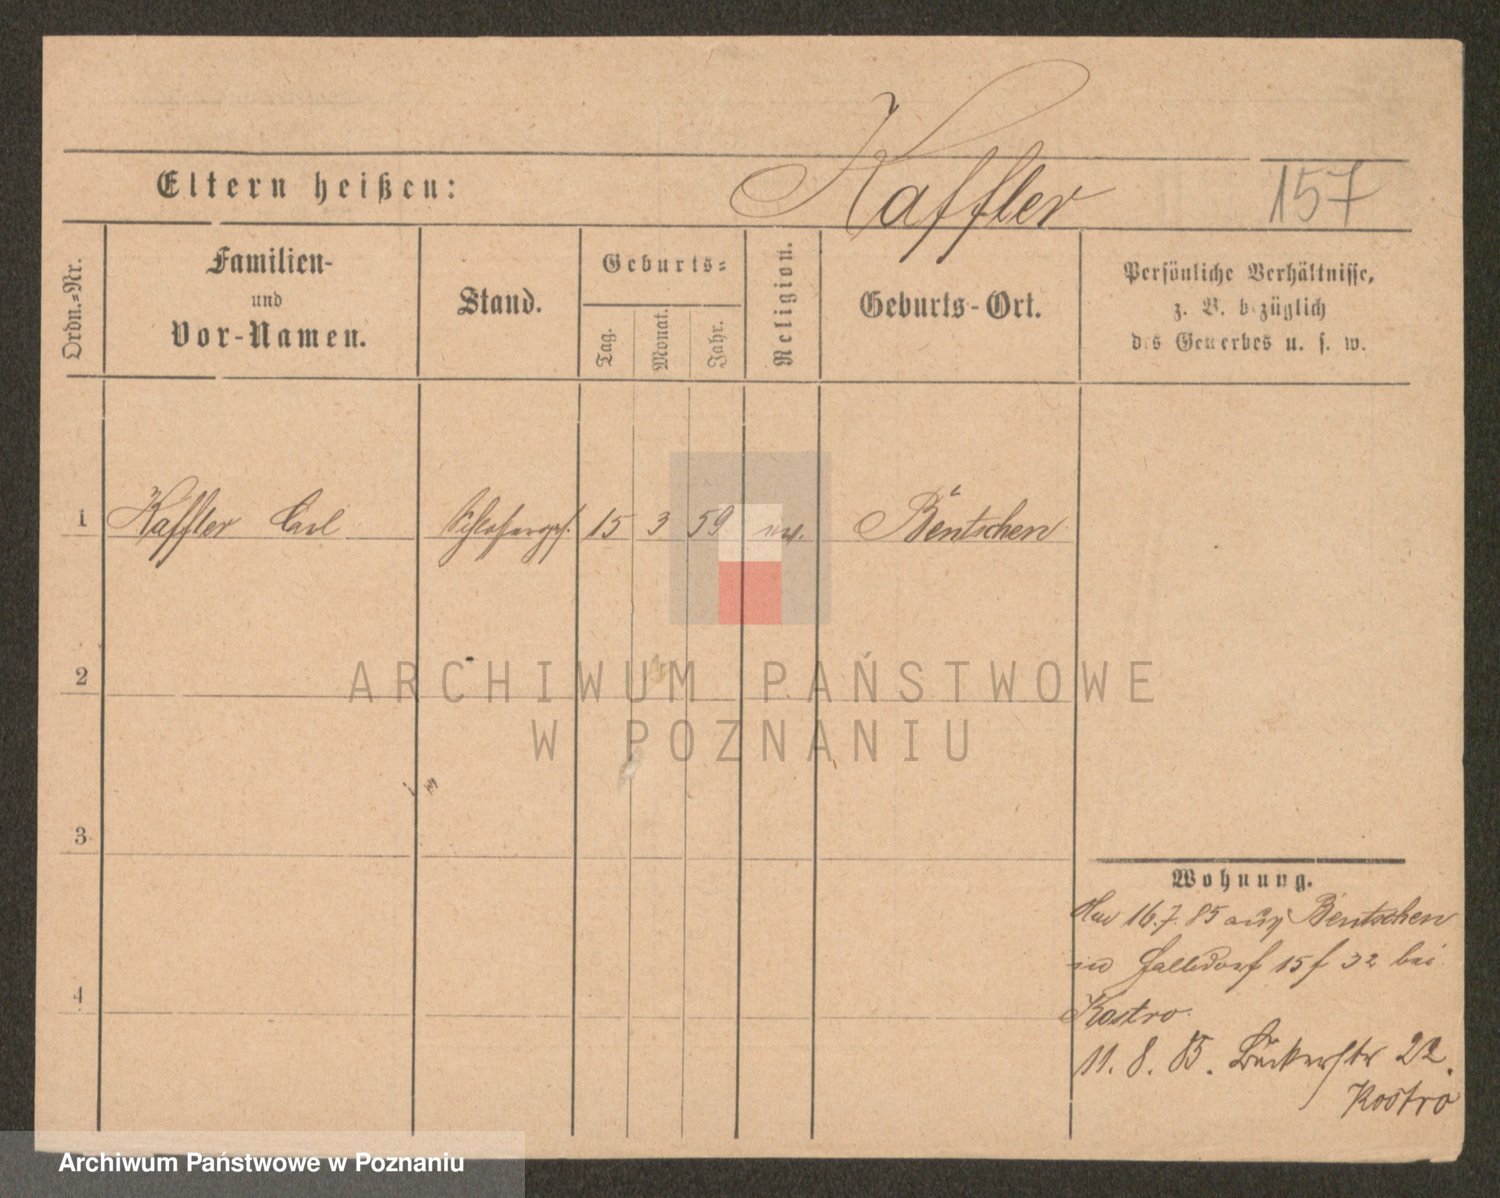 Kaffler
157
Eltern heißen:
Ordn.-Nr.
Familien-
und
Vor-Namen.
Stand.
Geburts-
Tag.
Monat.
Jahr.
Religion.
Geburts-Ort.
Persönliche Verhältnisse,
z. B. bezüglich
des Gewerbes u. s. w.
1 Kaffler Carl Schlosserges. 15 3 59 Bentschen
2
3
4
Wohnung.
16.7.85 aus Bentschen
in 15 f 32 bei
Kostro.
11. 8. 85. Bäckerstr 22.
Kostro
ARCHIWUM PAŃSTWOWE
W POZNANIU
Archiwum Państwowe w Poznaniu